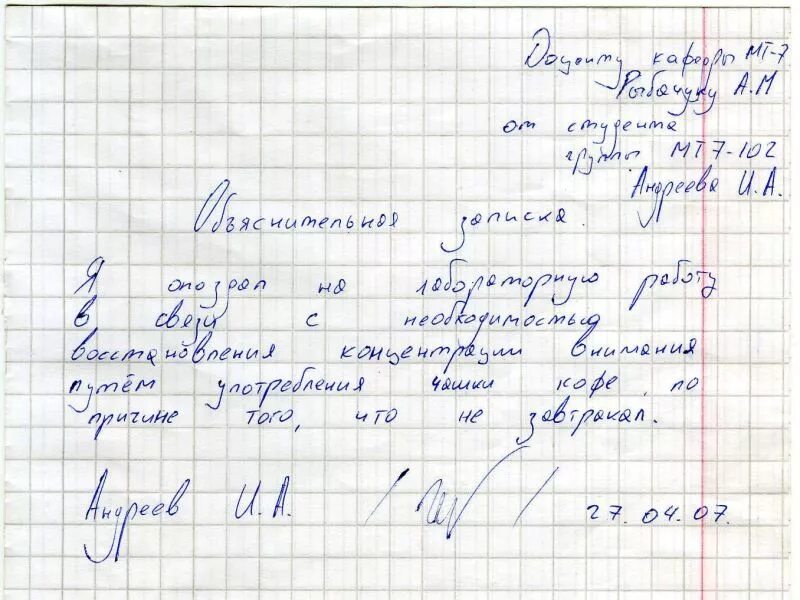 Доценту кафедры МТ-7
Рыбачуку А.М
от студента
группы МТ7-102
Андреева И.А.
Объяснительная записка.
Я опоздал на лабораторную работу
в связи с необходимостью
восстановления концентрации внимания
путём употребления чашки кофе по
причине того, что не завтракал.
Андреев И.А. / / 27.04.07.